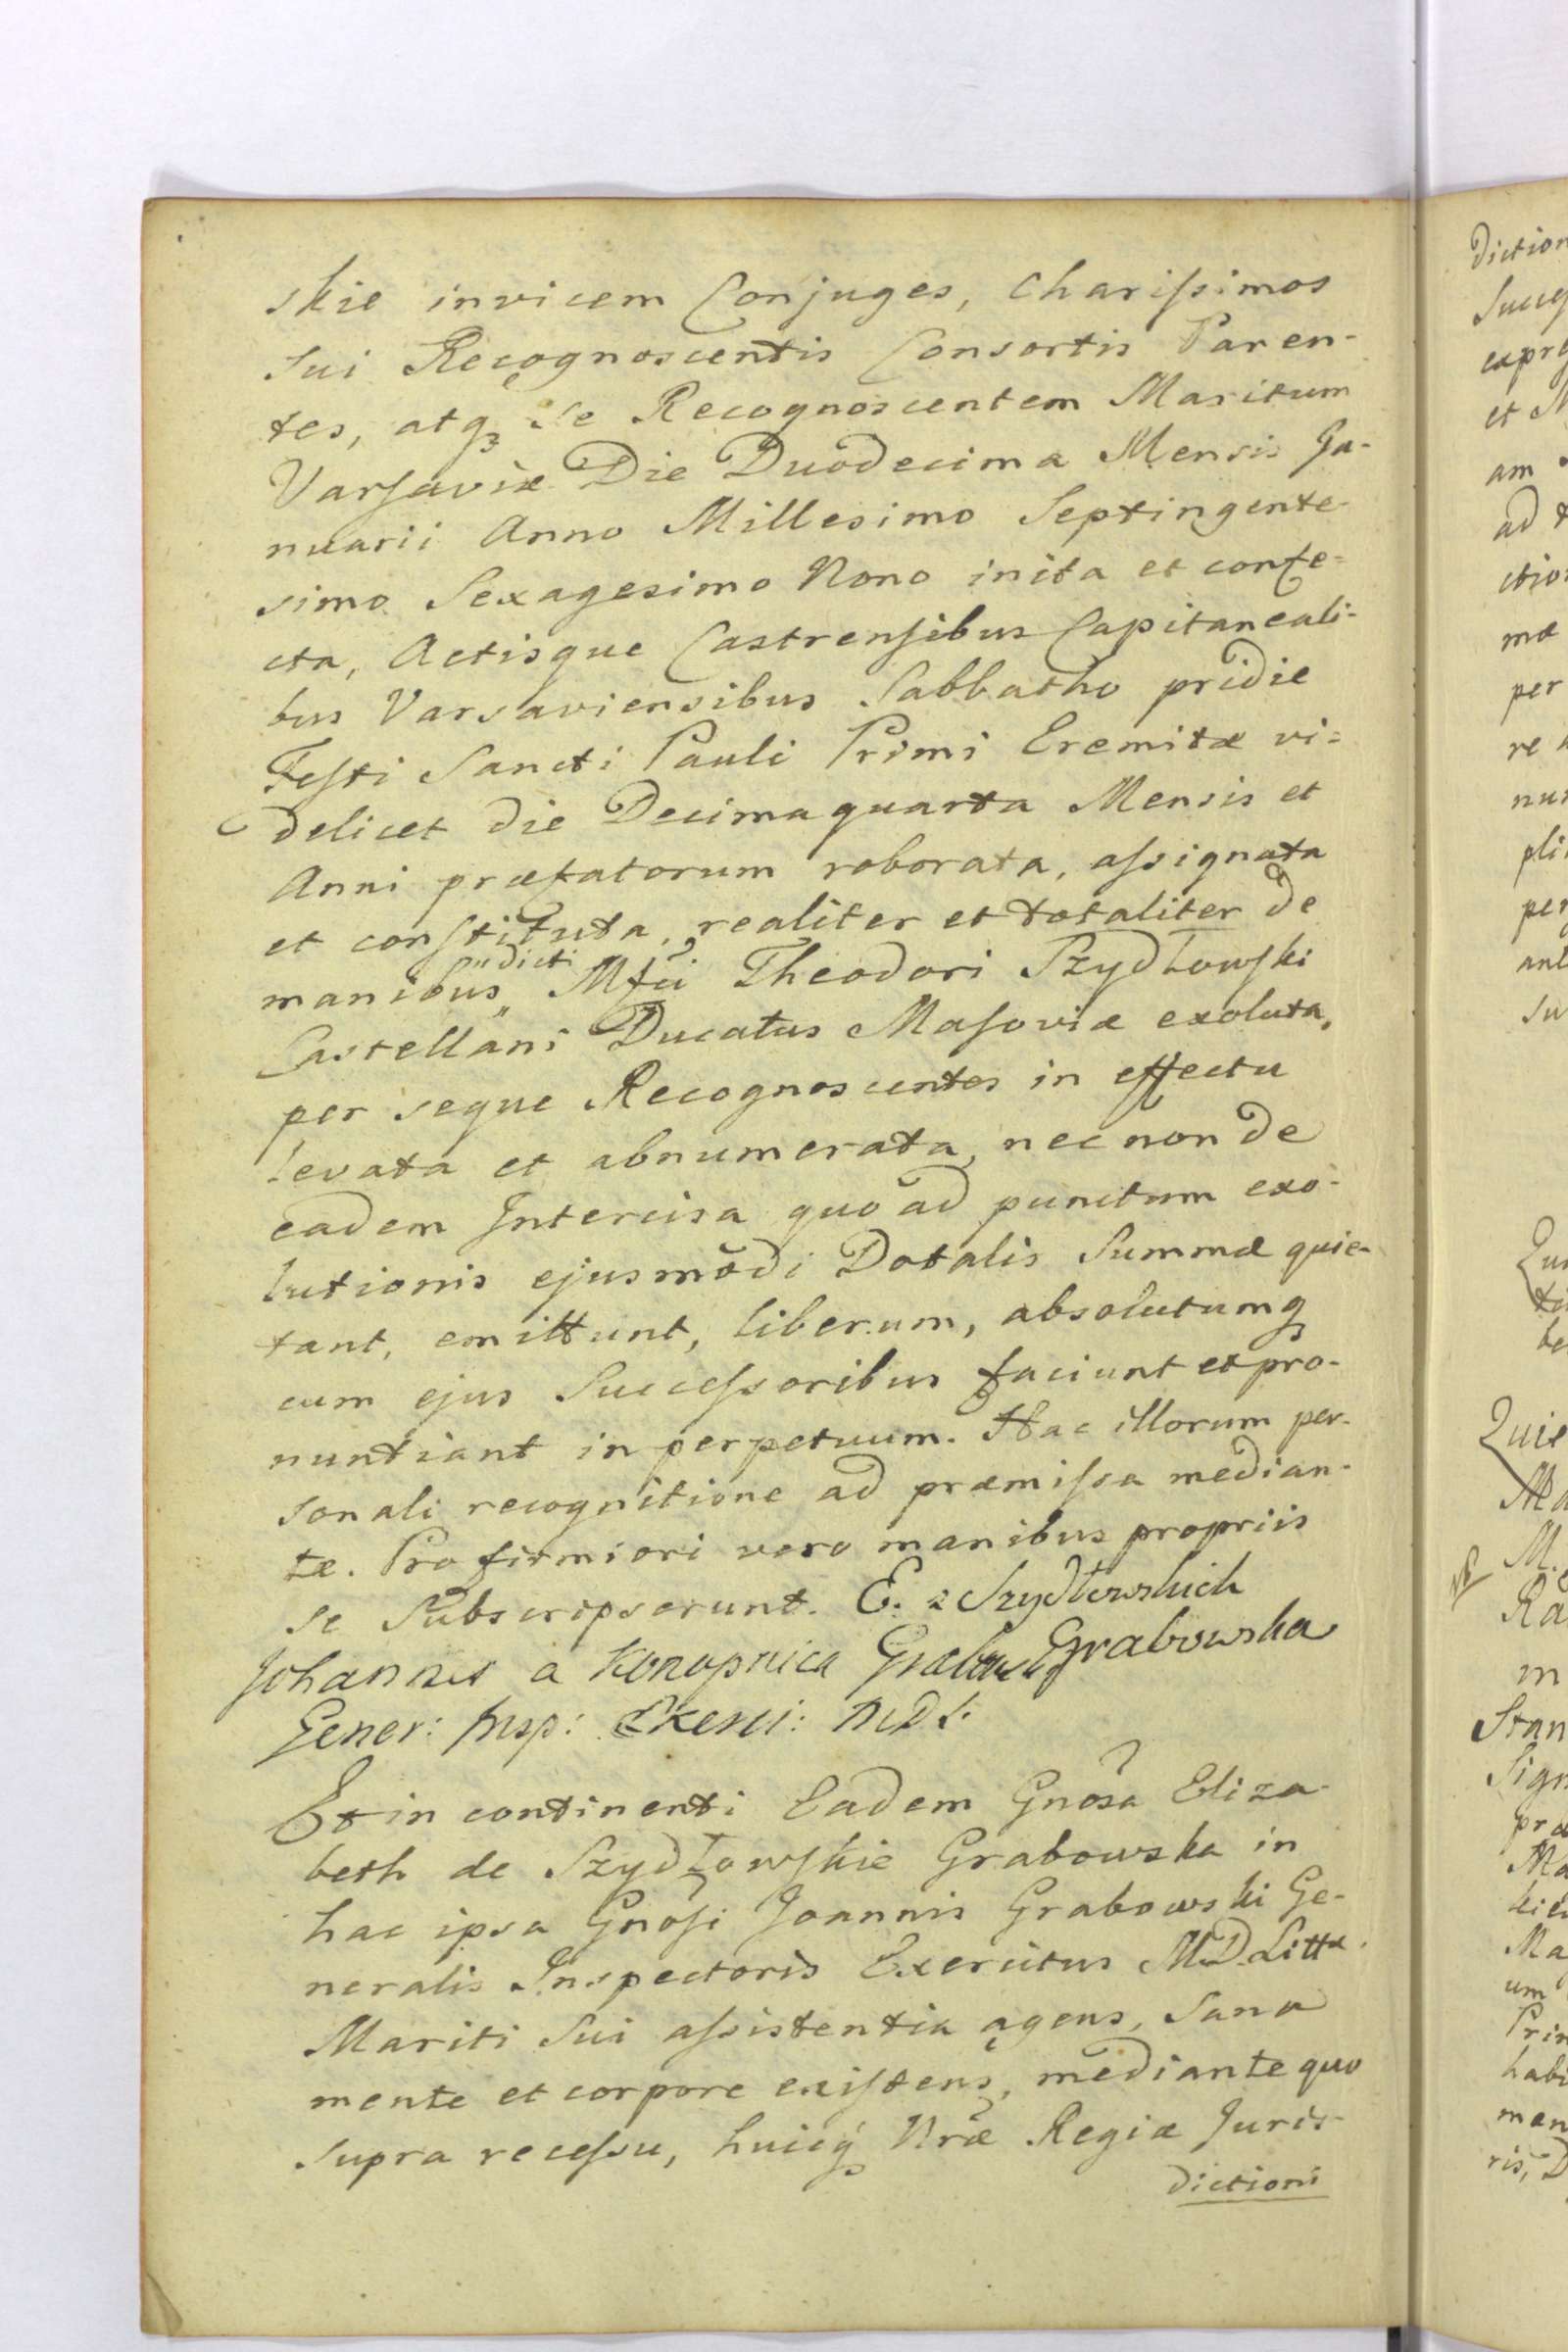 skie invicem Conjuges, Charissimos
sui Recognoscentis Consortis Paren-
tes, atqꝫ se Recognoscentem Maritum
Varsaviæ Die Duodecima Mensis Ja-
nuarii Anno Millesimo Septingente-
simo Sexagesimo Nono inita et confe=
cta, Actisque Castrensibus Capitaneali-
bus Varsaviensibus Sabbatho pridie
Festi Sancti Pauli Primi Eremitæ vi=
delicet die Decima quarta Mensis et
Anni præfatorum roborata, assignata
et constituta, realiter et totaliter de
manibus dicti Mfci Theodori Szydłowski
Castellani Ducatus Masoviæ exoluta,
per seque Recognoscentes in effectu
levata et abnumerata, nec non de
eadem Intercisa quo ad punctum exo-
lutionis ejusmodi Dotalis Summæ quie-
tant, emittunt, liberum, absolutumqꝫ
cum ejus Successoribus faciunt et pro-
nuntiant in perpetuum. Hac illorum per-
sonali recognitione ad præmissa median-
te. Pro firmiori vero manibus propriis
se Subscripserunt. E. z Szydłowskich
Johannes a Konopnica Grabowski Grabowska
Gener: Insp: Exerci: MDL:
Et in continenti Eadem Gnosa Eliza-
beth de Szydłowskie Grabowska in
hac ipsa Gnosi Joannis Grabowski Ge-
neralis Inspectoris Exercitus M.D. Littæ
Mariti Sui assistentia agens, Sana
mente et corpore existens, mediante quo
supra recessu, huicqꝫ Nræ Regiæ Juris-
dictioni
diction
Succes
expre
et M
am
ad
ctio
mæ
per
re
nu
pli
per
ant
su
Quie
Ma
M.
Ra
m
Stan
Sign
præ
Ma
Ma
um
Prin
habi
men
ris, D